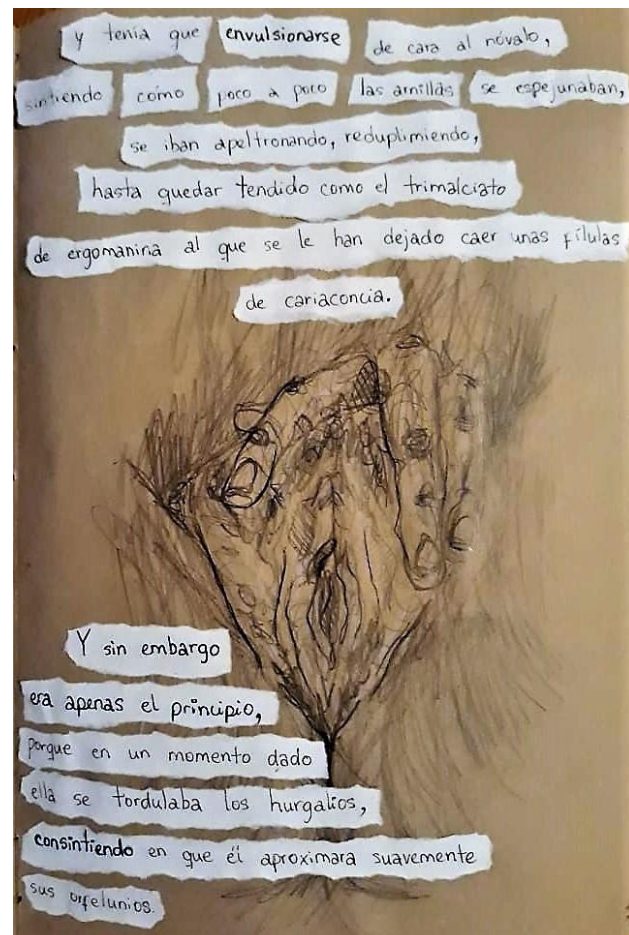 y tenía que envulsionarse de cara al nóvalo,
sintiendo cómo poco a poco las arnillas se espejunaban,
se iban apeltronando, reduplimiendo,
hasta quedar tendido como el trimalciato
de ergomanina al que se le han dejado caer unas fílulas
de cariaconcia.
Y sin embargo
era apenas el principio,
porque en un momento dado
ella se tordulaba los hurgalios,
consintiendo en que él aproximara suavemente
sus orfelunios.